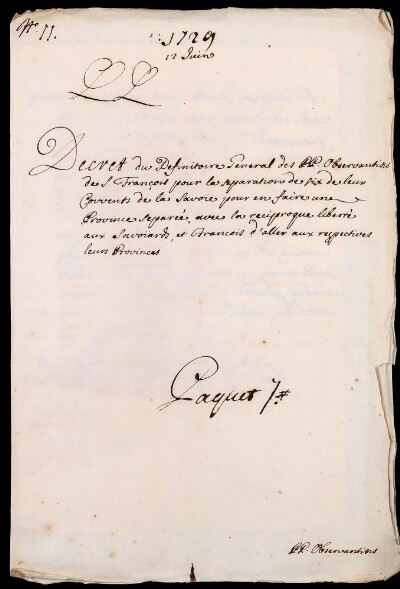 N.º 11.
1729
12 Juin
Decret du Definitoire General des PP. Observantins
de S. François pour la separation de six de leur
Covvents de la Savoie pour en faire une
Province separée, avec la reciproque liberté
aux Savoiards, et François d'aller aux respectives
leurs Provinces
Paquet 7.
PP. Observantins